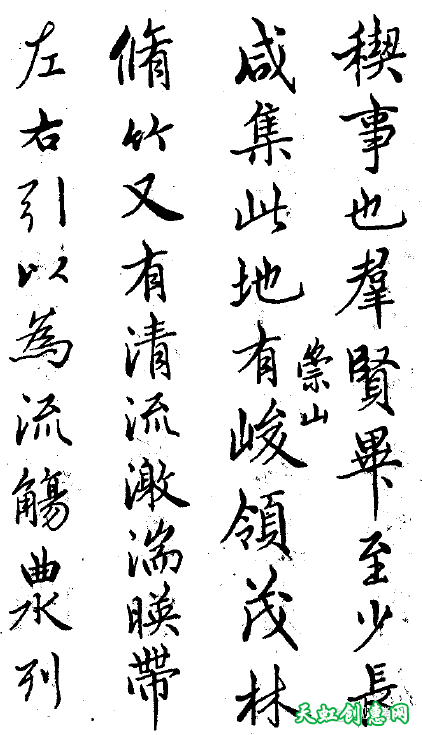 稧事也羣賢畢至少長
咸集此地有崇山峻領茂林
脩竹又有清流激湍暎帶
左右引以為流觴曲水列
天虹创惠网